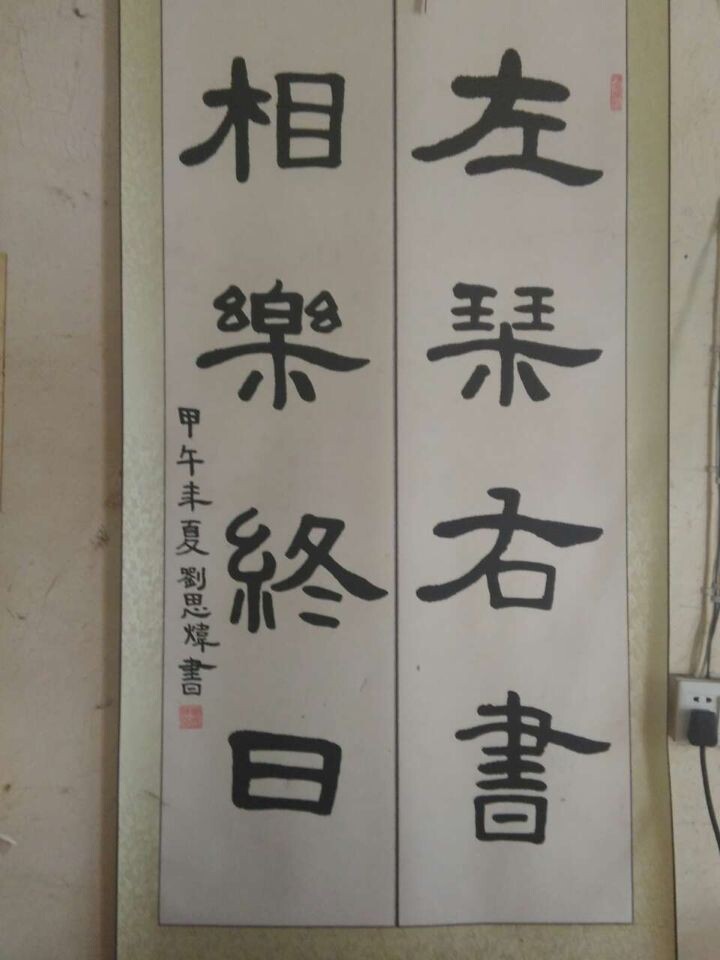 左琹右書
相樂終日
甲午年夏劉思煒書